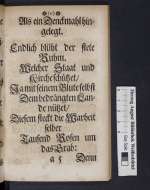 Als ein Denckmahl hin-
gelegt.
Endlich blüht der stete
Ruhm,
Welcher Staat und
Kirche schützet/
Ja mit seinem Blute selbst
Dem bedrängten Lan-
de nützet/
Diesem steckt die Warheit
selber
Tausend Rosen um
das Grab:
a 5 Denn